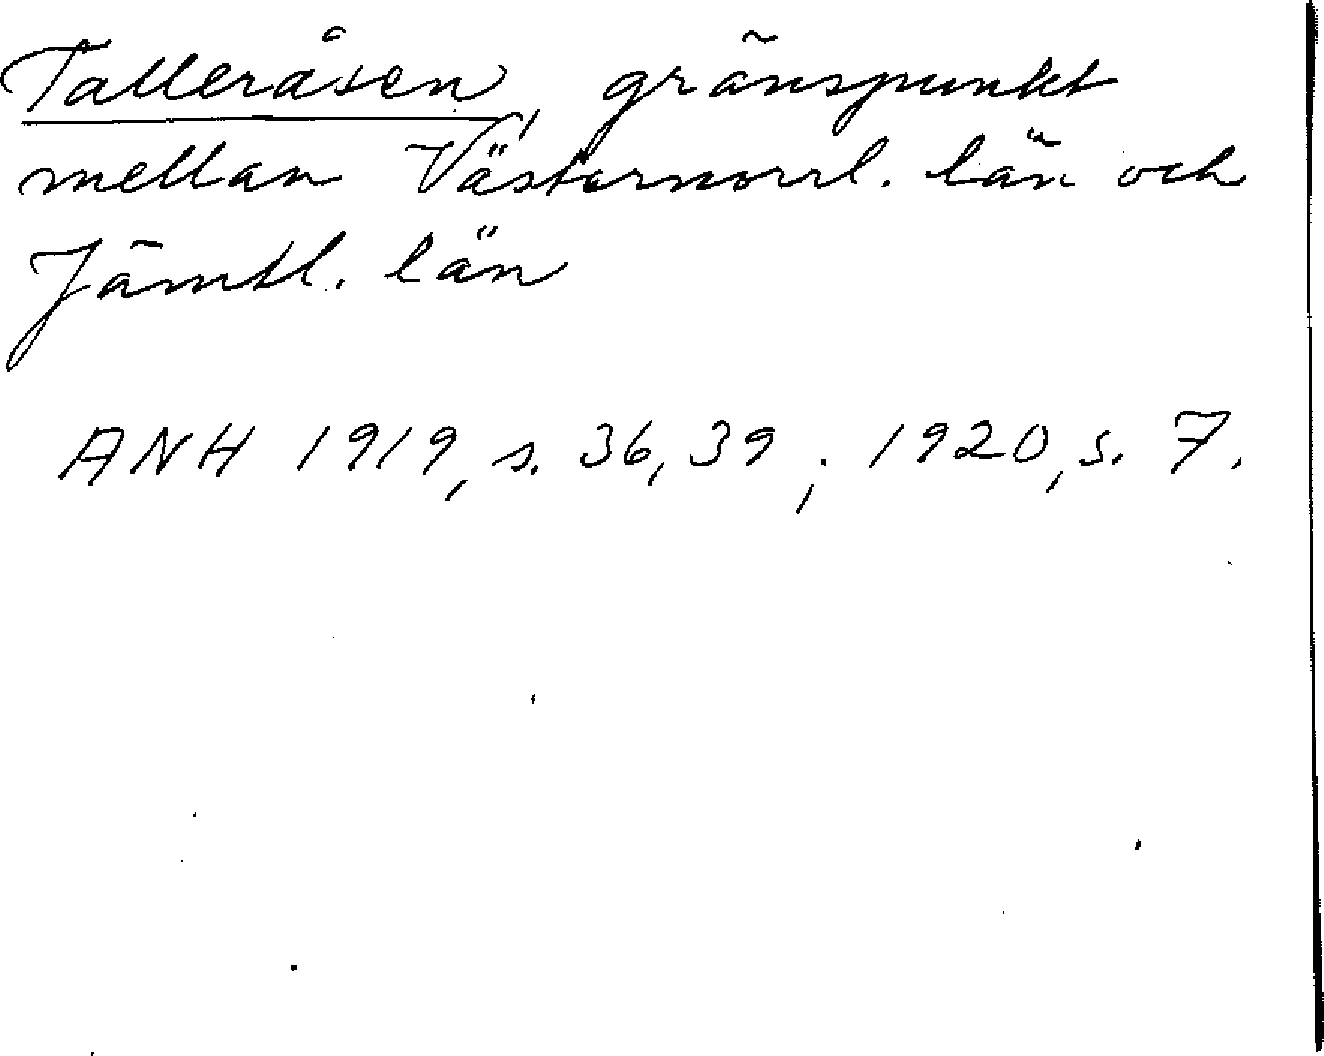 Talleråsen, gränspunkt
mellan Västernorrl. län och
Jämtl. län
ANH 1919, s. 36, 39; 1920, s. 7.